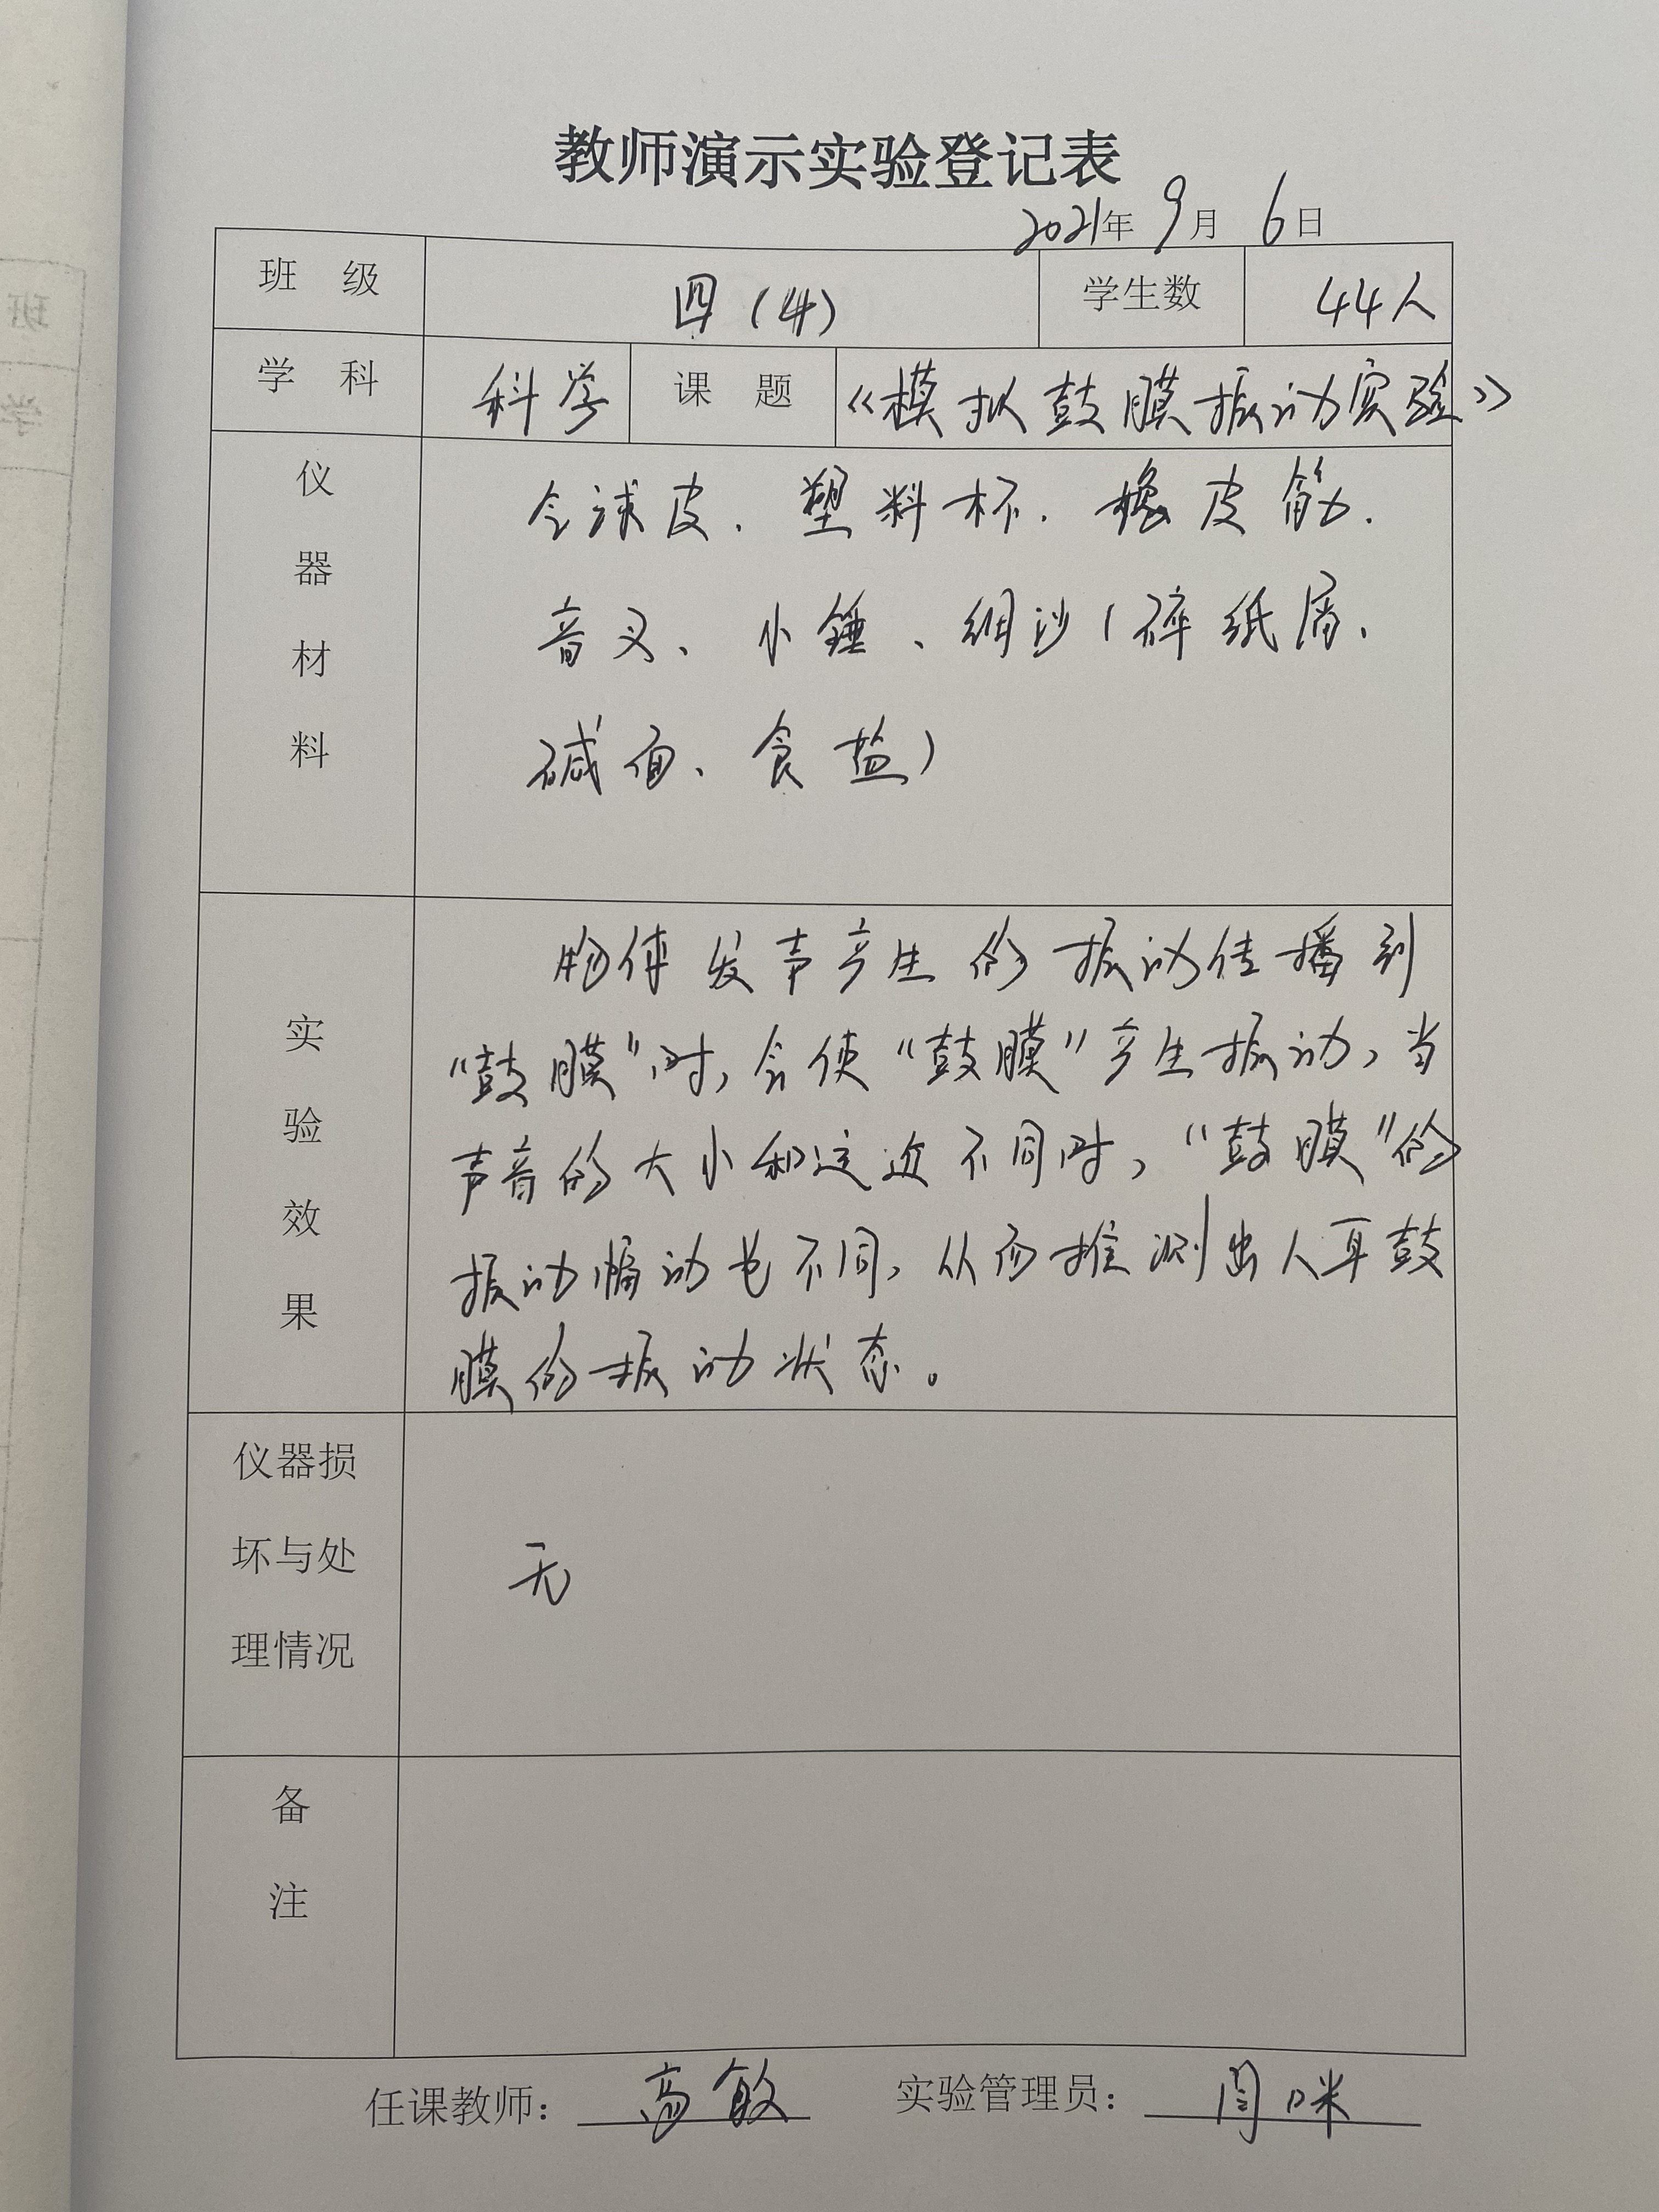 教师演示实验登记表
2021年 9月 6日
班 级 四(4) 学生数 44人
学 科 科学 课 题 《模拟鼓膜振动实验》
仪器材料
球皮、塑料杯、橡皮筋、
音叉、小锤、细沙(碎纸屑、
碱面、食盐)
实验效果
物体发声产生的振动传播到
“鼓膜”时,会使“鼓膜”产生振动,当
声音的大小和远近不同时,“鼓膜”的
振动幅动也不同,从而推测出人耳鼓
膜的振动状态。
仪器损
坏与处
理情况
无
备注
任课教师: 高敏 实验管理员: 闫咪
班
学